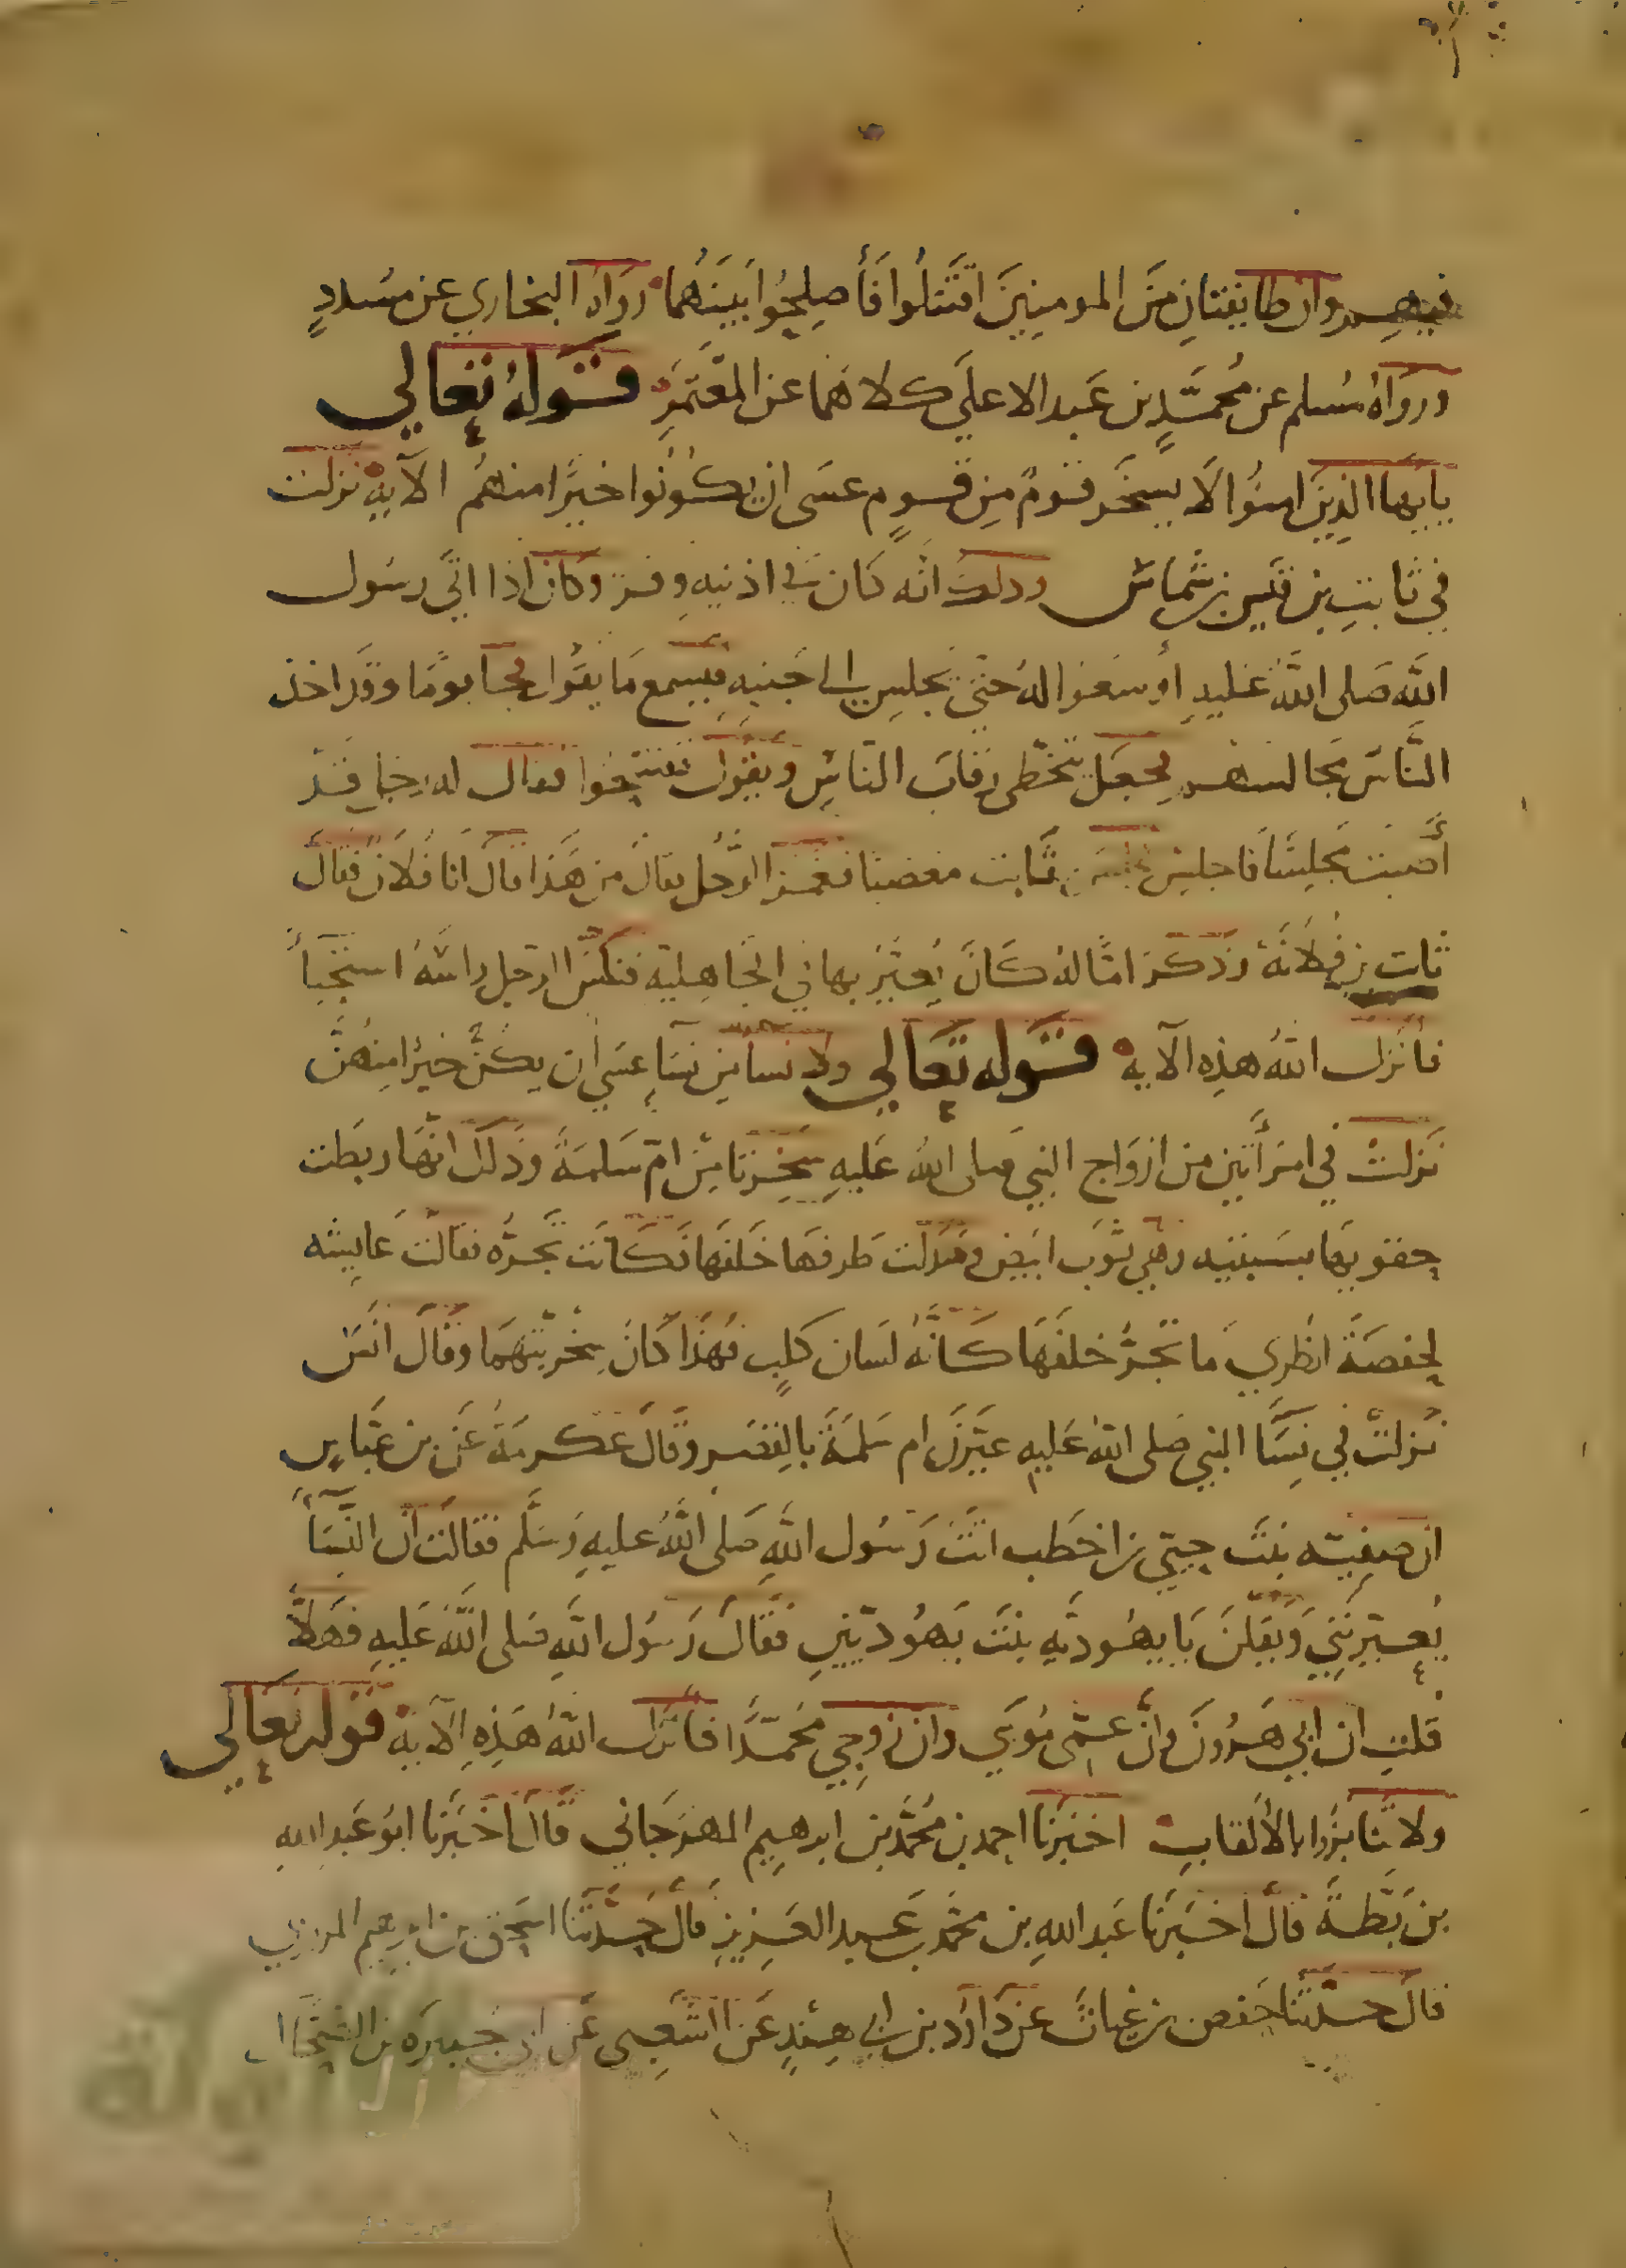 فيهم وان طايفتان من المومنين اقتتلوا فأصلحوا بينهما رواه البخاري عن مسددٍ
ورواه مسلم عن محمد بن عبد الاعلي كلاهما عن المعتمر قوله تعالي
يايها الذين امنوا لا يسخر قوم من قوم عسى ان يكونوا خيرا منهم الآيه نزلت
في ثابت بن قيس بن شماس وذلك انه كان في اذنيه وقر وكان اذا اتي رسول
الله صلى الله عليه أوسعوا له حتي يجلس الى جنبه فيسمع ما يقول فجا يوما وقد اخذ
الناس مجالسهم فجعل يتخطى رقاب الناس ويقول تفسحوا فقال له رجل قد
أصبت مجلسا فاجلس فجلس ثابت مغضبا فغمز الرجل فقال من هذا قال انا فلان فقال
ثابت بن فلانة وذكر اما له كان يعير بها في الجاهلية فنكس الرجل راسه استحياً
فأنزل الله هذه الآيه قوله تعالي ولا نسا من نساء عسي ان يكن خيرا منهن
نزلت في امرأتين من ازواج النبي صلى الله عليه سخرتا من ام سلمة وذلك انها ربطت
حقويها بسبنيه وهي ثوب ابيض وسدلت طرفها خلفها فكانت تجره فقالت عايشه
لحفصة انظري ما تجر خلفها كانه لسان كلب فهذا كان سخريتهما وقال انس
نزلت في نسا النبي صلى الله عليه عيرن ام سلمة بالقصر وقال عكرمة عن بن عباس
ان صفيه بنت حيي بن اخطب اتت رسول الله صلى الله عليه وسلم فقالت ان النسأ
يعيرنني ويقلن يا يهودية بنت يهوديين فقال رسول الله صلى الله عليه فهلا
قلت ان ابي هرون وان عمي موسي وان زوجي محمدا فأنزل الله هذه الآية قوله تعالي
ولا تنابزوا بالألقاب اخبرنا احمد بن محمد بن ابرهيم المهرجاني قال اخبرنا ابو عبد الله
بن بطة قال اخبرنا عبد الله بن محمد بن عبد العزيز قال حدثنا اسحق بن ابرهيم المروزي
قال حدثنا حفص بن غياث عن داود بن ابي هند عن الشعبي عن ابي جبيره بن الضحاك